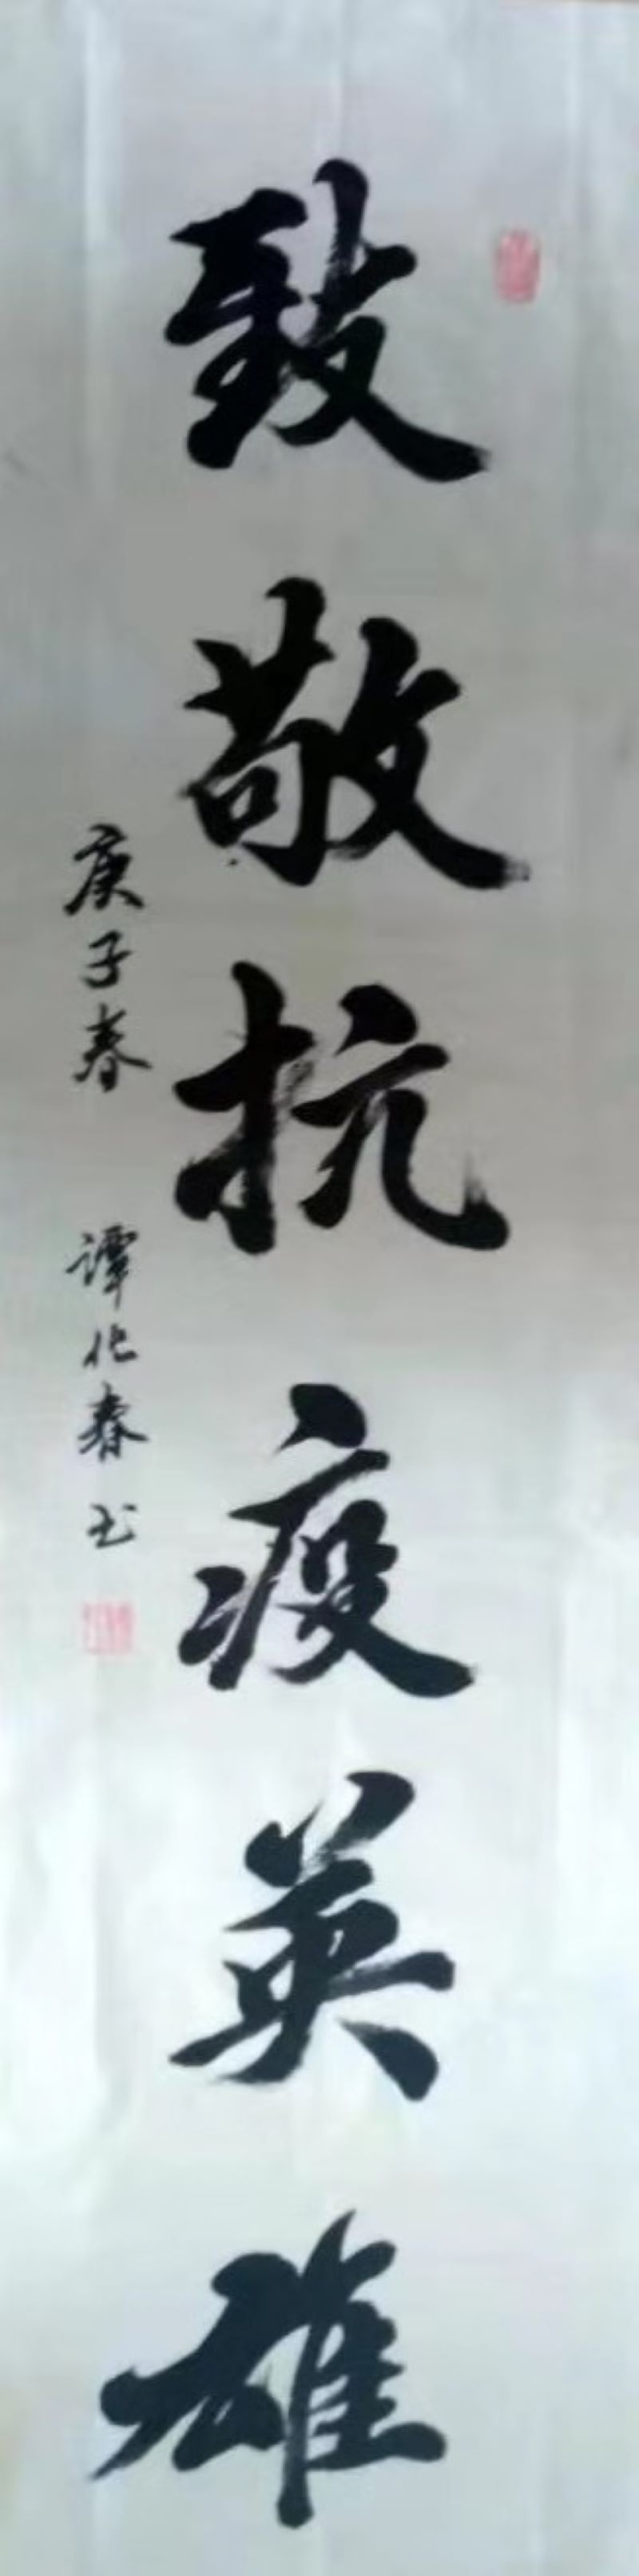 致敬抗疫英雄
庚子春 谭化春书